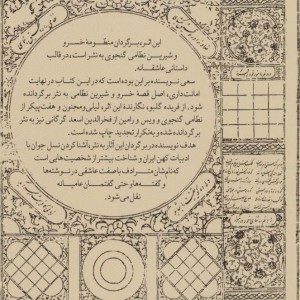 این اثر، برگردان منظومهٔ خسرو
و شیرین نظامی گنجوی به نثر است، در قالب
داستانی عاشقانه.
سعی نویسنده براین بوده است که در این کتاب در نهایت
امانت‌داری، اصل قصهٔ خسرو و شیرین نظامی به نثر برگردانده
شود. از فریده گلبو، نگارندهٔ این اثر، لیلی و مجنون و هفت‌پیکر از
نظامی گنجوی و ویس و رامین از فخرالدین اسعد گرگانی نیز به نثر
برگردانده شده و به تکرار تجدید چاپ شده است.
هدف نویسنده در برگردان این آثار به نثر، آشنا کردن نسل جوان با
ادبیات کهن ایران و شناخت بیشتر از شخصیت‌هایی است
که نامشان مترادف با صفت عاشقی در نوشته‌ها
و گفته‌ها و حتی گفتمان عامیانه
نقل می‌شود.